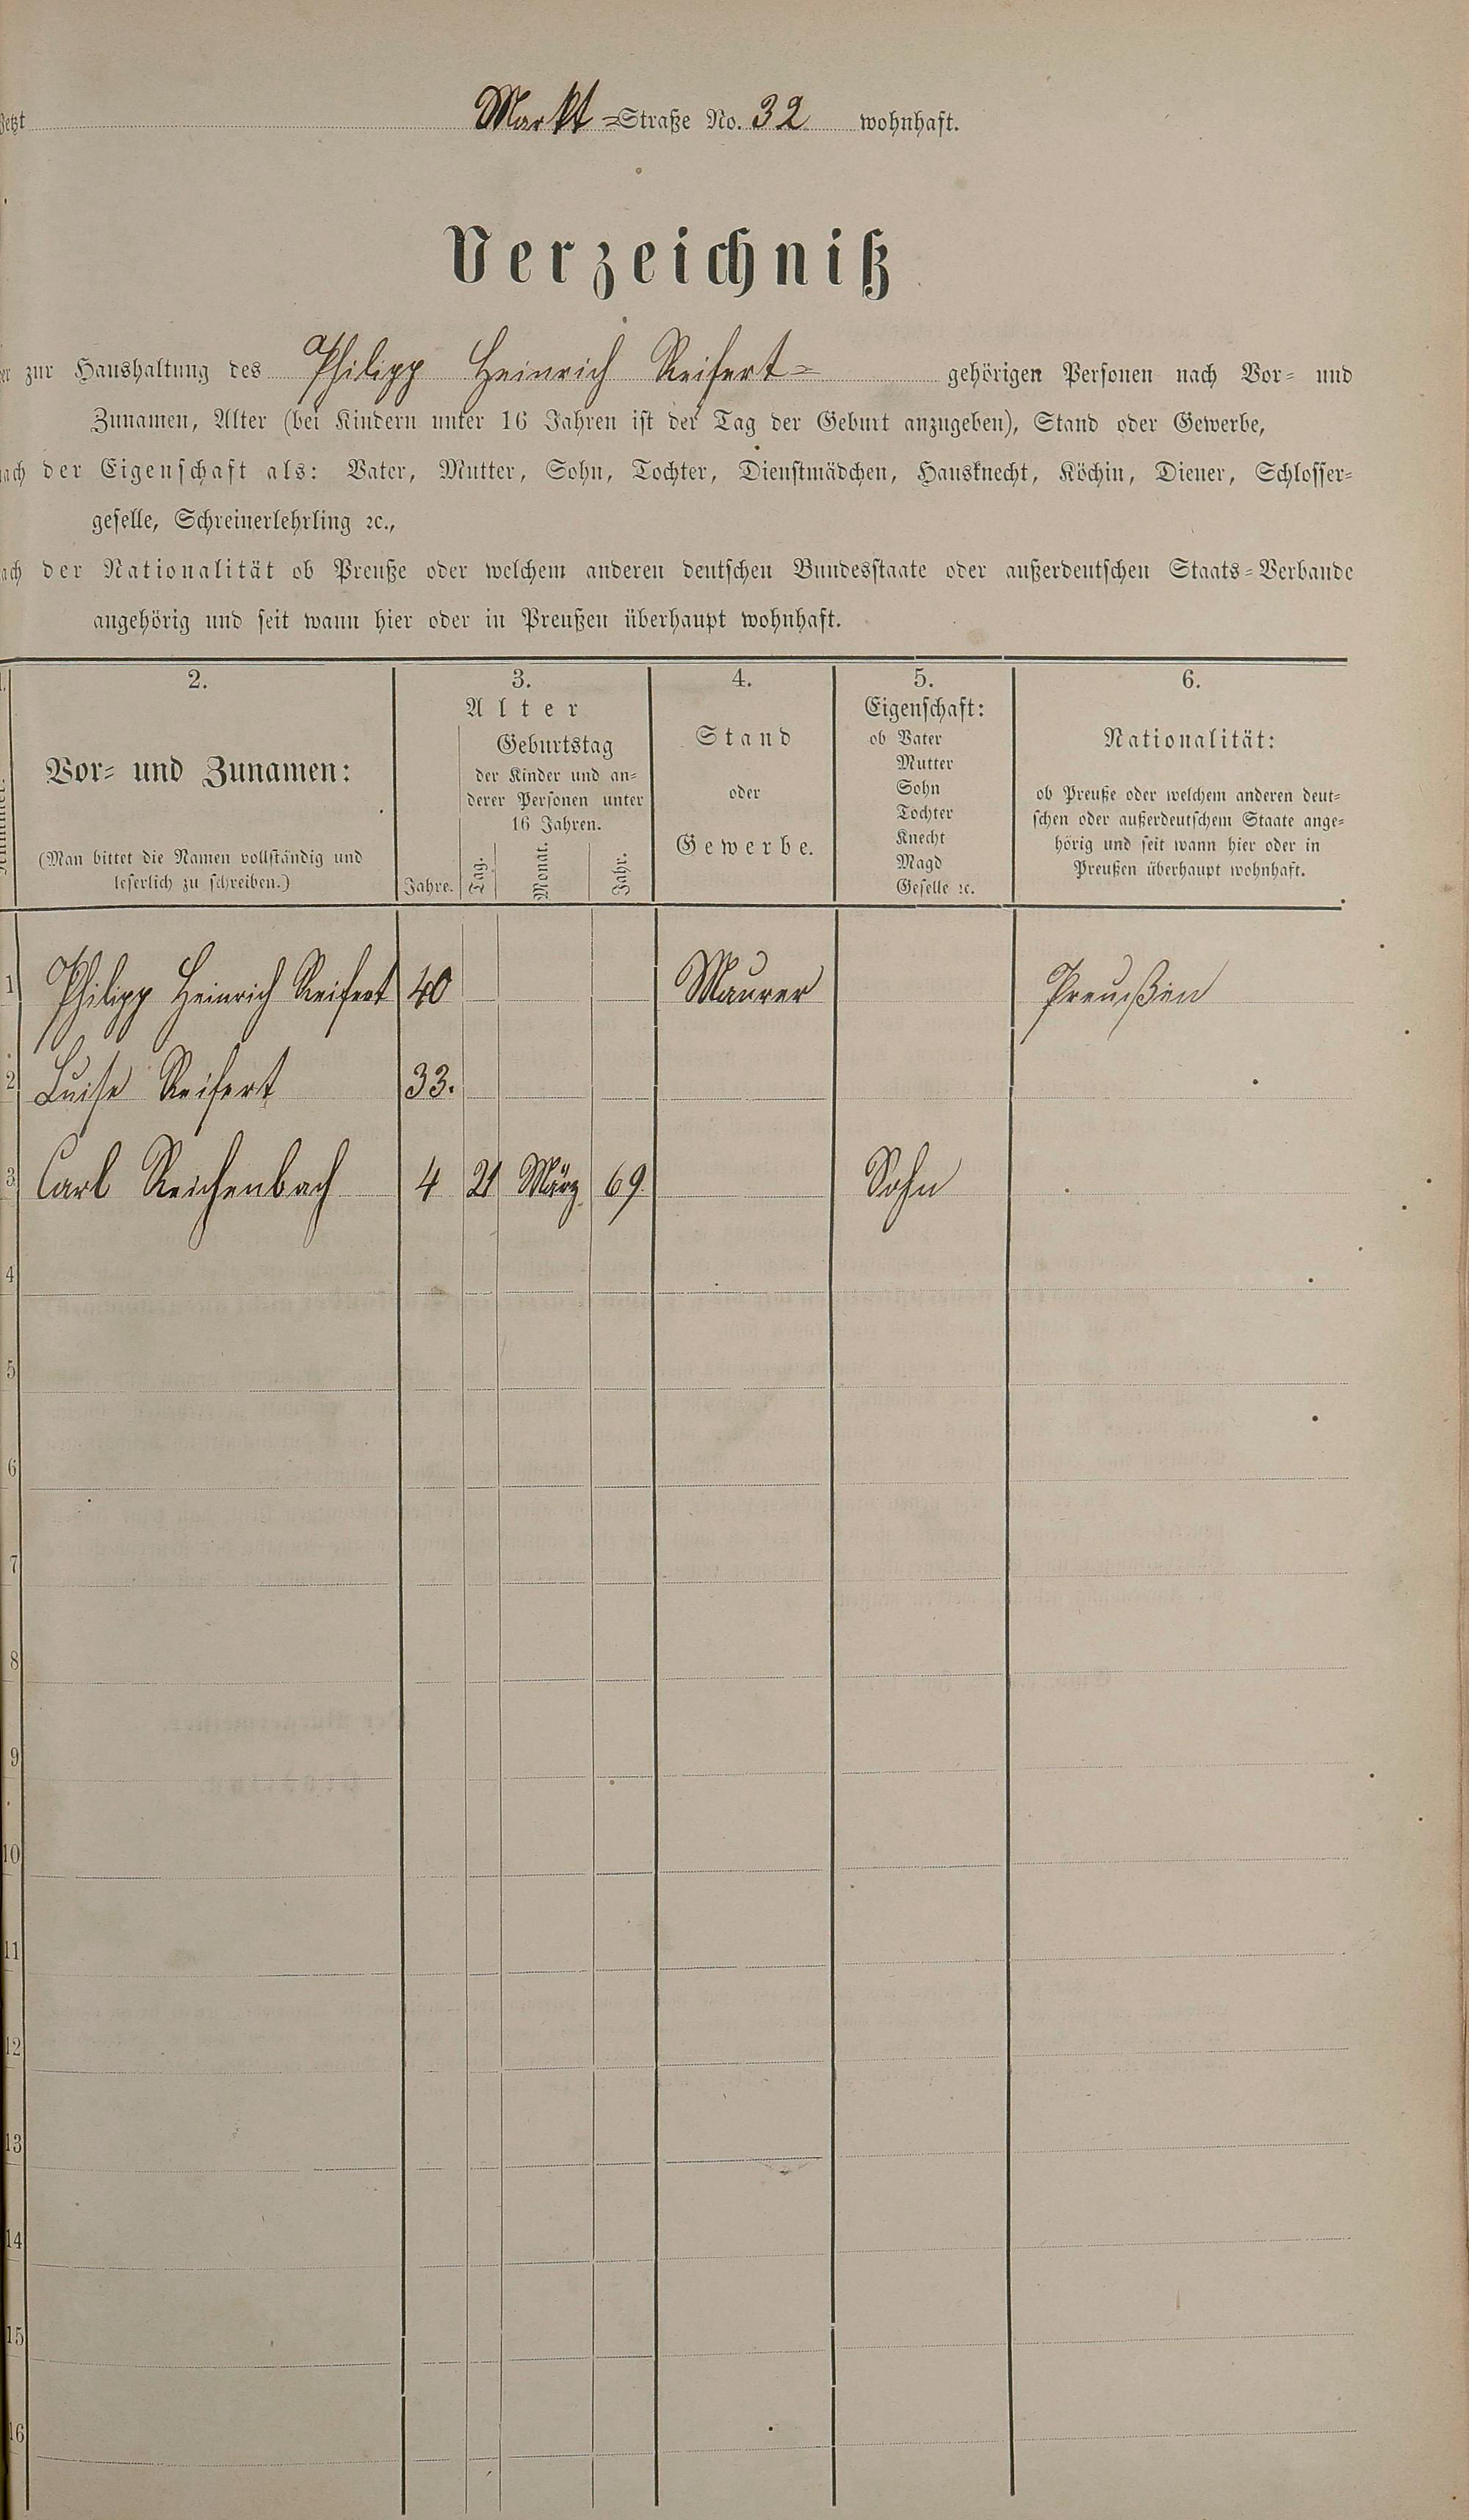 Jetzt Markt-Straße No. 32 wohnhaft.
Verzeichniß
der zur Haushaltung des Philipp Heinrich Reifert- gehörigen Personen nach Vor- und
Zunamen, Alter (bei Kindern unter 16 Jahren ist der Tag der Geburt anzugeben), Stand oder Gewerbe,
nach der Eigenschaft als: Vater, Mutter, Sohn, Tochter, Dienstmädchen, Hausknecht, Köchin, Diener, Schlosser-
geselle, Schreinerlehrling ꝛc.,
nach der Nationalität ob Preuße oder welchem anderen deutschen Bundesstaate oder außerdeutschen Staats-Verbande
angehörig und seit wann hier oder in Preußen überhaupt wohnhaft.
2. 3. 4. 5. 6.
Vor- und Zunamen:
(Man bittet die Namen vollständig und
leserlich zu schreiben.)
Alter
Jahre.
Geburtstag
der Kinder und an-
derer Personen unter
16 Jahren.
Tag. Monat. Jahr.
Stand
oder
Gewerbe.
Eigenschaft:
ob Vater
Mutter
Sohn
Tochter
Knecht
Magd
Geselle ꝛc.
Nationalität:
ob Preuße oder welchem anderen deut-
schen oder außerdeutschem Staate ange-
hörig und seit wann hier oder in
Preußen überhaupt wohnhaft.
1 Philipp Heinrich Reifert 40 Maurer Preußen
2 Luise Reifert 33.
3 Carl Reichenbach 4 21 März 69. Sohn
4
5
6
7
8
9
10
11
12
13
14
15
16